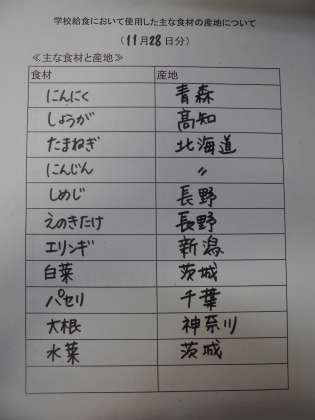 学校給食において使用した主な食材の産地について
(11月28日分)
≪主な食材と産地≫
食材 産地
にんにく 青森
しょうが 高知
たまねぎ 北海道
にんじん 〃
しめじ 長野
えのきたけ 長野
エリンギ 新潟
白菜 茨城
パセリ 千葉
大根 神奈川
水菜 茨城